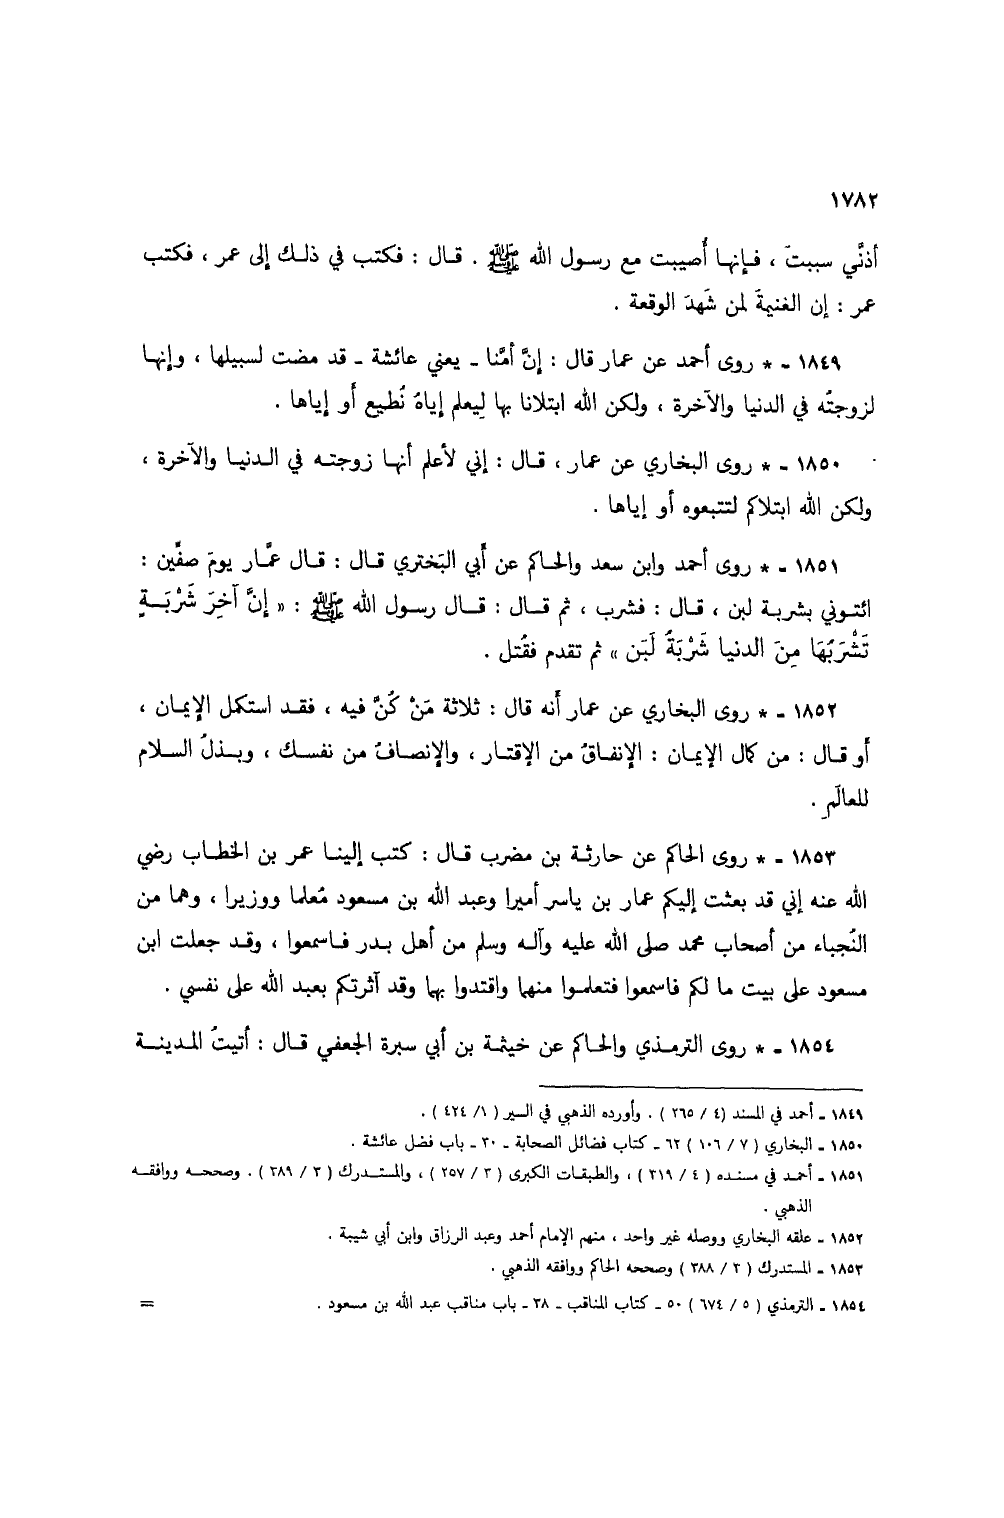 ١٧٨٢
أذنَّي سببتَ ، فـإنهـا أُصيبت مع رسـول الله ﷺ . قـال : فكتب في ذلـك إلى عمر ، فكتب
عمر : إن الغنيمةَ لمن شَهدَ الوقعة .
١٨٤٩ ـ * روى أحمد عن عمار قال : إنَّ أمَّنا ـ يعني عائشة ـ قد مضت لسبيلها ، وإنهـا
لزوجتُه في الدنيا والآخرة ، ولكن الله ابتلانا بها لِيعلم إياهُ نُطيع أو إياها .
١٨٥٠ ـ * روى البخاري عن عمار ، قـال : إني لأعلم أنهـا زوجتـه في الـدنيـا والآخرة ،
ولكن الله ابتلاكم لتتبعوه أو إياها .
١٨٥١ ـ * روى أحمد وابن سعد والحـاكم عن أبي البَختري قـال : قـال عمَّـار يومَ صفَّين :
ائتـوني بشربـة لبن ، قـال : فشرب ، ثم قـال : قـال رسـول الله ﷺ : « إنَّ آخِرَ شَرْبَـةٍ
تَشْرَبُهَا مِنَ الدنيا شَرْبَةُ لَبَن » ثم تقدم فقُتل .
١٨٥٢ ـ * روى البخاري عن عمار أنه قال : ثلاثة مَنْ كُنَّ فيه ، فقـد استكمل الإيمـان ،
أو قـال : من كمال الإيمـان : الإنفـاقُ من الإقتـار ، والإنصـافُ من نفسـك ، وبـذلُ السـلام
للعالَمِ .
١٨٥٣ ـ * روى الحاكم عن حارثـة بن مضرب قـال : كتب إلينـا عمر بن الخطـاب رضي
الله عنه إني قد بعثت إليكم عمار بن ياسر أميرا وعبد الله بن مسعود مُعلما ووزيرا ، وهما من
النُجباء من أصحاب محمد صلى الله عليه وآلـه وسلم من أهل بـدر فـاسمعوا ، وقـد جعلت ابن
مسعود على بيت ما لكم فاسمعوا فتعلمـوا منهما واقتدوا بهما وقد آثرتكم بعبد الله على نفسي .
١٨٥٤ ـ * روى الترمـذي والحـاكم عن خيثمـة بن أبي سبرة الجعفي قـال : أتيتُ المـدينـة
١٨٤٩ ـ أحمد في المسند (٤ / ٢٦٥ ) . وأورده الذهبي في السير ( ١/ ٤٢٤ ) .
١٨٥٠ ـ البخاري ( ٧ / ١٠٦ ) ٦٢ ـ كتاب فضائل الصحابة ـ ٣٠ ـ باب فضل عائشة .
١٨٥١ ـ أحمـد في مسنـده ( ٤ / ٣١٩ ) ، والطبقـات الكبرى ( ٣ / ٢٥٧ ) ، والمستـدرك ( ٣ / ٣٨٩ ) . وصححـه ووافقـه
الذهبي .
١٨٥٢ ـ علقه البخاري ووصله غير واحد ، منهم الإمام أحمد وعبد الرزاق وابن أبي شيبة .
١٨٥٣ ـ المستدرك ( ٣ / ٣٨٨ ) وصححه الحاكم ووافقه الذهبي .
١٨٥٤ ـ الترمذي ( ٥ / ٦٧٤ ) ٥٠ ـ كتاب المناقب ـ ٣٨ ـ باب مناقب عبد الله بن مسعود . =